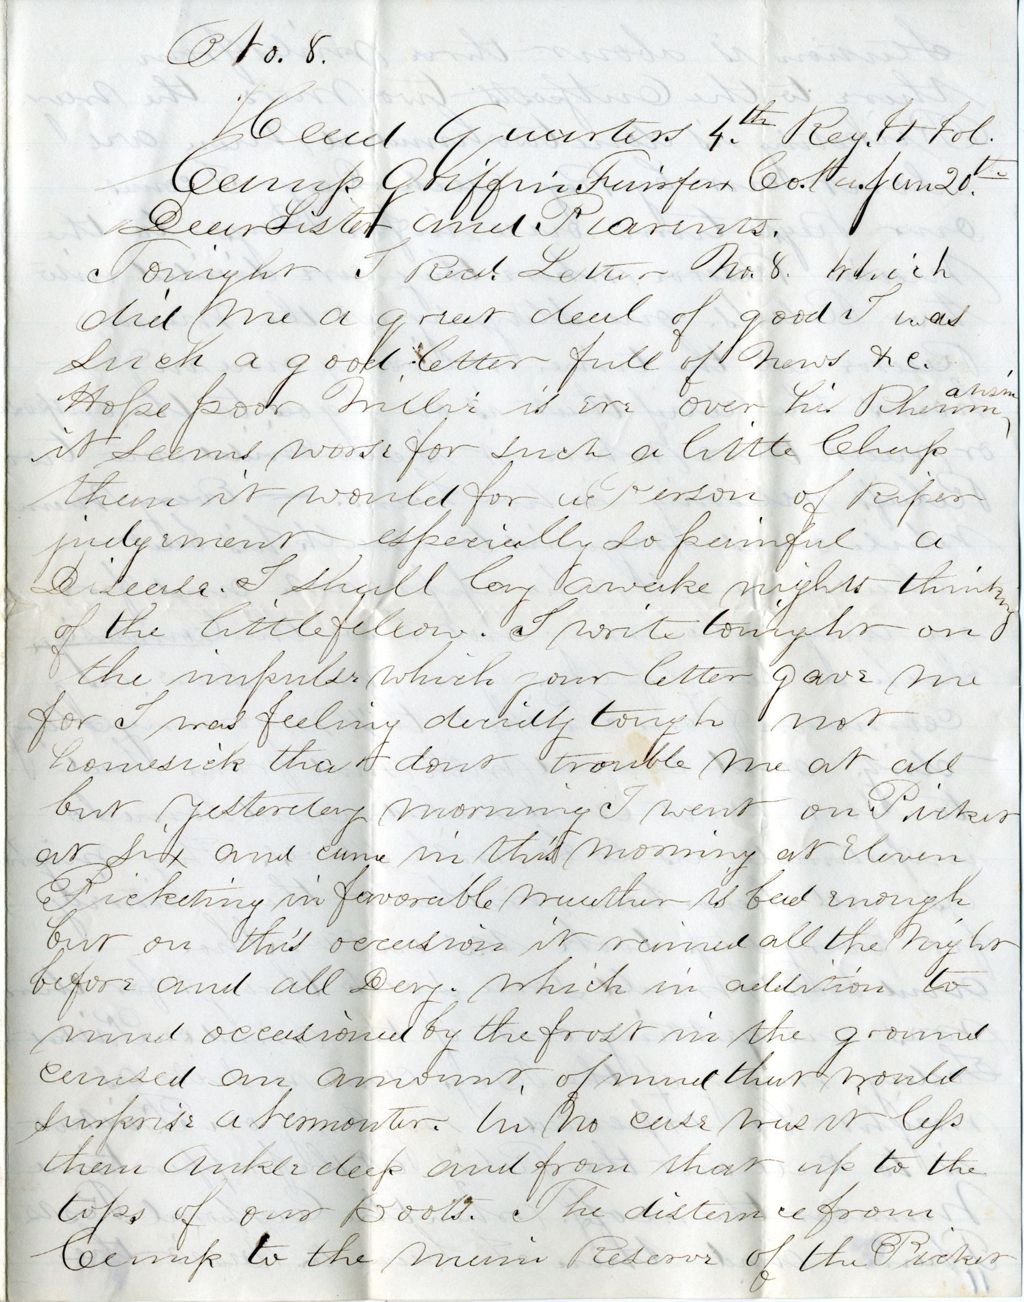 No. 8.
Head Quarters 4.th Reg. Vt Vol.
Camp Griffin Fairfax Co. Va. Jan 20.th
Dear Sister and Parents.
Tonight I Recd. Letter No. 8. which
did me a great deal of good I was
such a good letter full of News &c.
Hope poor Willie is ere over his Rheumatism
it seems worse for such a little Chap
than it would for a Person of Riper
judgement especially so painful a
Disease. I shall lay awake nights thinking
of the little fellow. I write tonight on
the impulse which your letter gave me
for I was feeling decidly tough not
homesick that dont trouble me at all
but yesterday morning I went on Picket
at six and came in this morning at Eleven
Picketing in favorable weather is bad enough
but on this occasion it rained all the Night
before and all Day. which in addition to
mud occasioned by the frost in the ground
caused an amount, of mud that would
surprise a Vermonter. In no case was it less
than Ankle deep and from that up to the
tops of our Boots. The distance from
Camp to the main Reserve of the Picket